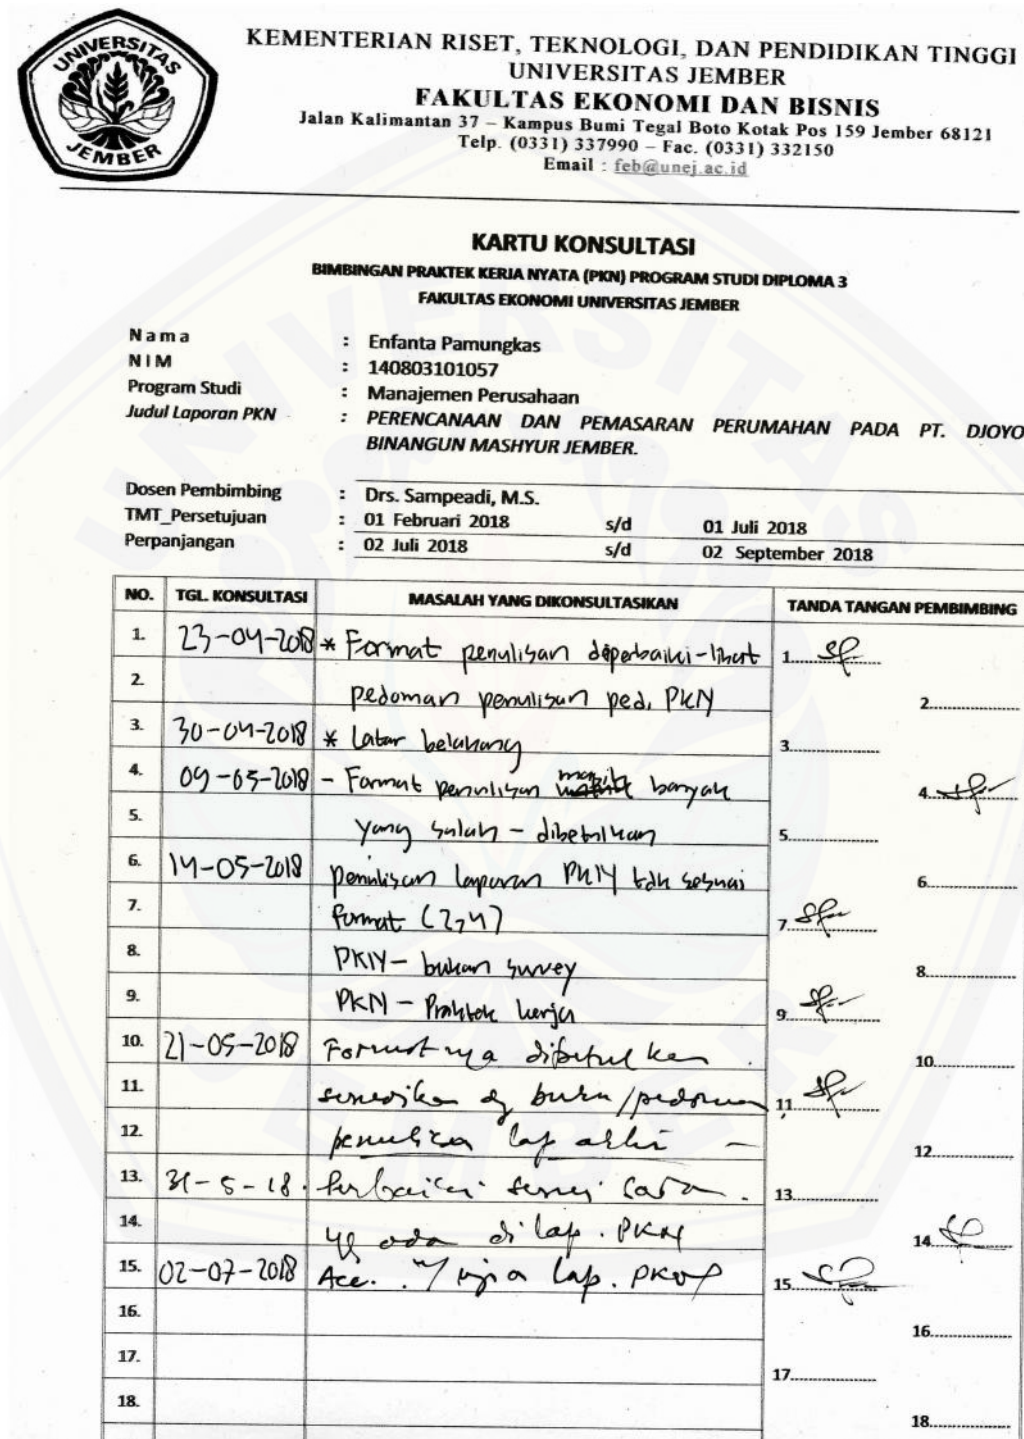 UNIVERSITAS
JEMBER
KEMENTERIAN RISET, TEKNOLOGI, DAN PENDIDIKAN TINGGI
UNIVERSITAS JEMBER
FAKULTAS EKONOMI DAN BISNIS
Jalan Kalimantan 37 – Kampus Bumi Tegal Boto Kotak Pos 159 Jember 68121
Telp. (0331) 337990 – Fac. (0331) 332150
Email : feb@unej.ac.id
KARTU KONSULTASI
BIMBINGAN PRAKTEK KERJA NYATA (PKN) PROGRAM STUDI DIPLOMA 3
FAKULTAS EKONOMI UNIVERSITAS JEMBER
Nama : Enfanta Pamungkas
NIM : 140803101057
Program Studi : Manajemen Perusahaan
Judul Laporan PKN : PERENCANAAN DAN PEMASARAN PERUMAHAN PADA PT. DJOYO
BINANGUN MASHYUR JEMBER.
Dosen Pembimbing : Drs. Sampeadi, M.S.
TMT_Persetujuan : 01 Februari 2018 s/d 01 Juli 2018
Perpanjangan : 02 Juli 2018 s/d 02 September 2018
NO. TGL. KONSULTASI MASALAH YANG DIKONSULTASIKAN TANDA TANGAN PEMBIMBING
1. 23-04-2018 * Format penulisan diperbaiki-lihat 1...........
2. pedoman penulisan ped. PKN 2...........
3. 30-04-2018 * Latar belakang 3...........
4. 09-05-2018 - Format penulisan masih banyak 4...........
5. yang salah - dibetulkan 5...........
6. 14-05-2018 penulisan laporan PKN tdk sesuai 6...........
7. format (2,4) 7...........
8. PKN - bukan survey 8...........
9. PKN - Praktek kerja 9...........
10. 21-05-2018 Formatnya dibetulkan 10...........
11. sesuaikan dg buku/pedoman 11...........
12. penulisan lap akhir - 12...........
13. 31-5-18. Perbaiki sesuai 13...........
14. yg ada di lap. PKN 14...........
15. 02-07-2018 Acc. uji lap. PKN 15...........
16. 16...........
17. 17...........
18. 18...........